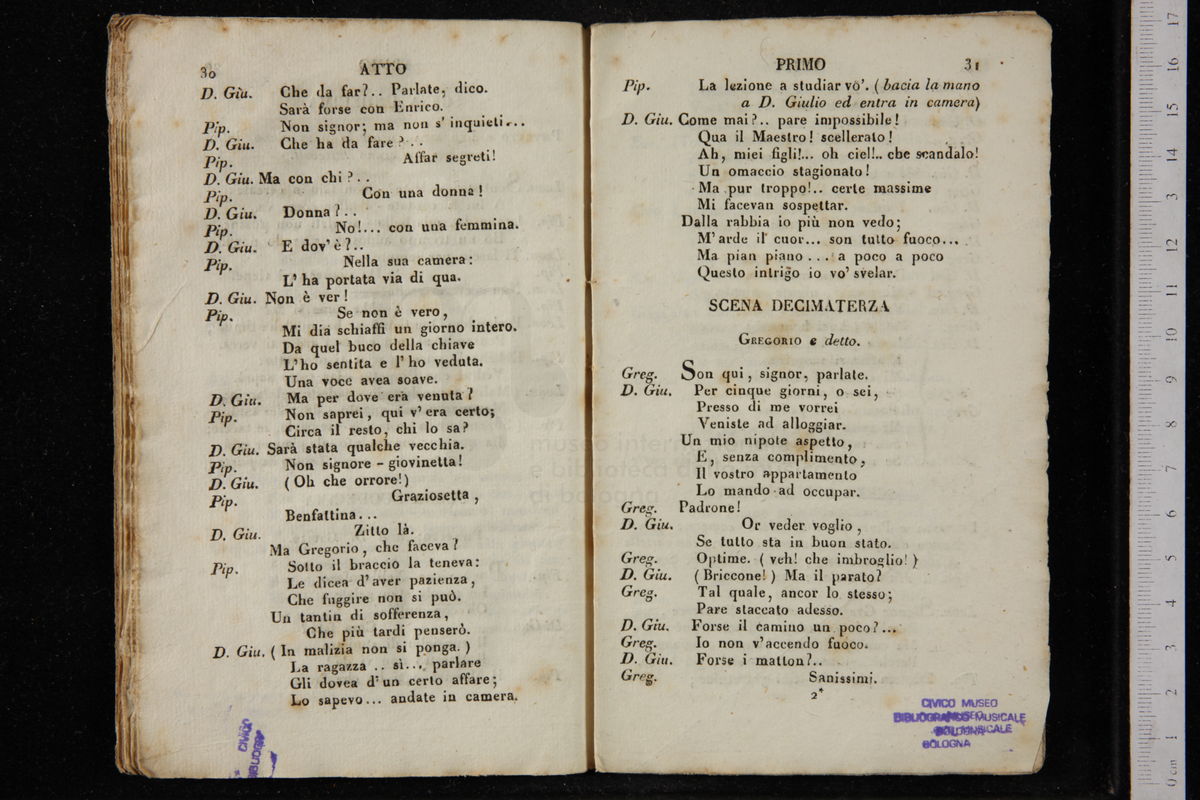 30
ATTO
D. Giu. Che da far?.. Parlate, dico.
Sarà forse con Enrico.
Pip. Non signor; ma non s' inquieti...
D. Giu. Che ha da fare?..
Pip. Affar segreti!
D. Giu. Ma con chi?..
Pip. Con una donna!
D. Giu. Donna?..
Pip. No!... con una femmina.
D. Giu. E dov' è?..
Pip. Nella sua camera:
L' ha portata via di qua.
D. Giu. Non è ver!
Pip. Se non è vero,
Mi dia schiaffi un giorno intero.
Da quel buco della chiave
L' ho sentita e l' ho veduta.
Una voce avea soave.
D. Giu. Ma per dove era venuta?
Pip. Non saprei, qui v' era certo;
Circa il resto, chi lo sa?
D. Giu. Sarà stata qualche vecchia.
Pip. Non signore - giovinetta!
D. Giu. (Oh che orrore!)
Pip. Graziosetta,
Benfattina...
D. Giu. Zitto là.
Ma Gregorio, che faceva?
Pip. Sotto il braccio la teneva:
Le dicea d' aver pazienza,
Che fuggire non si può.
Un tantin di sofferenza,
Che più tardi penserò.
D. Giu. (In malizia non si ponga.)
La ragazza .. sì... parlare
Gli dovea d' un certo affare;
Lo sapevo... andate in camera.
CIVICO
PRIMO
31
Pip. La lezione a studiar vo'. (bacia la mano
a D. Giulio ed entra in camera)
D. Giu. Come mai?.. pare impossibile!
Qua il Maestro! scellerato!
Ah, miei figli!... oh ciel!.. che scandalo!
Un omaccio stagionato!
Ma pur troppo!.. certe massime
Mi facevan sospettar.
Dalla rabbia io più non vedo;
M' arde il cuor... son tutto fuoco...
Ma pian piano ... a poco a poco
Questo intrigo io vo' svelar.
SCENA DECIMATERZA
GREGORIO e detto.
Greg. Son qui, signor, parlate.
D. Giu. Per cinque giorni, o sei,
Presso di me vorrei
Veniste ad alloggiar.
Un mio nipote aspetto,
E, senza complimento,
Il vostro appartamento
Lo mando ad occupar.
Greg. Padrone!
D. Giu. Or veder voglio,
Se tutto sta in buon stato.
Greg. Optime. (veh! che imbroglio!)
D. Giu. (Briccone!) Ma il parato?
Greg. Tal quale, ancor lo stesso;
Pare staccato adesso.
D. Giu. Forse il camino un poco?...
Greg. Io non v' accendo fuoco.
D. Giu. Forse i matton?..
Greg. Sanissimi.
2*
CIVICO MUSEO
BIBLIOGRAFICO MUSICALE
BOLOGNA
museo inter
e biblioteca d
di bologna
0 cm 1 2 3 4 5 6 7 8 9 10 11 12 13 14 15 16 17